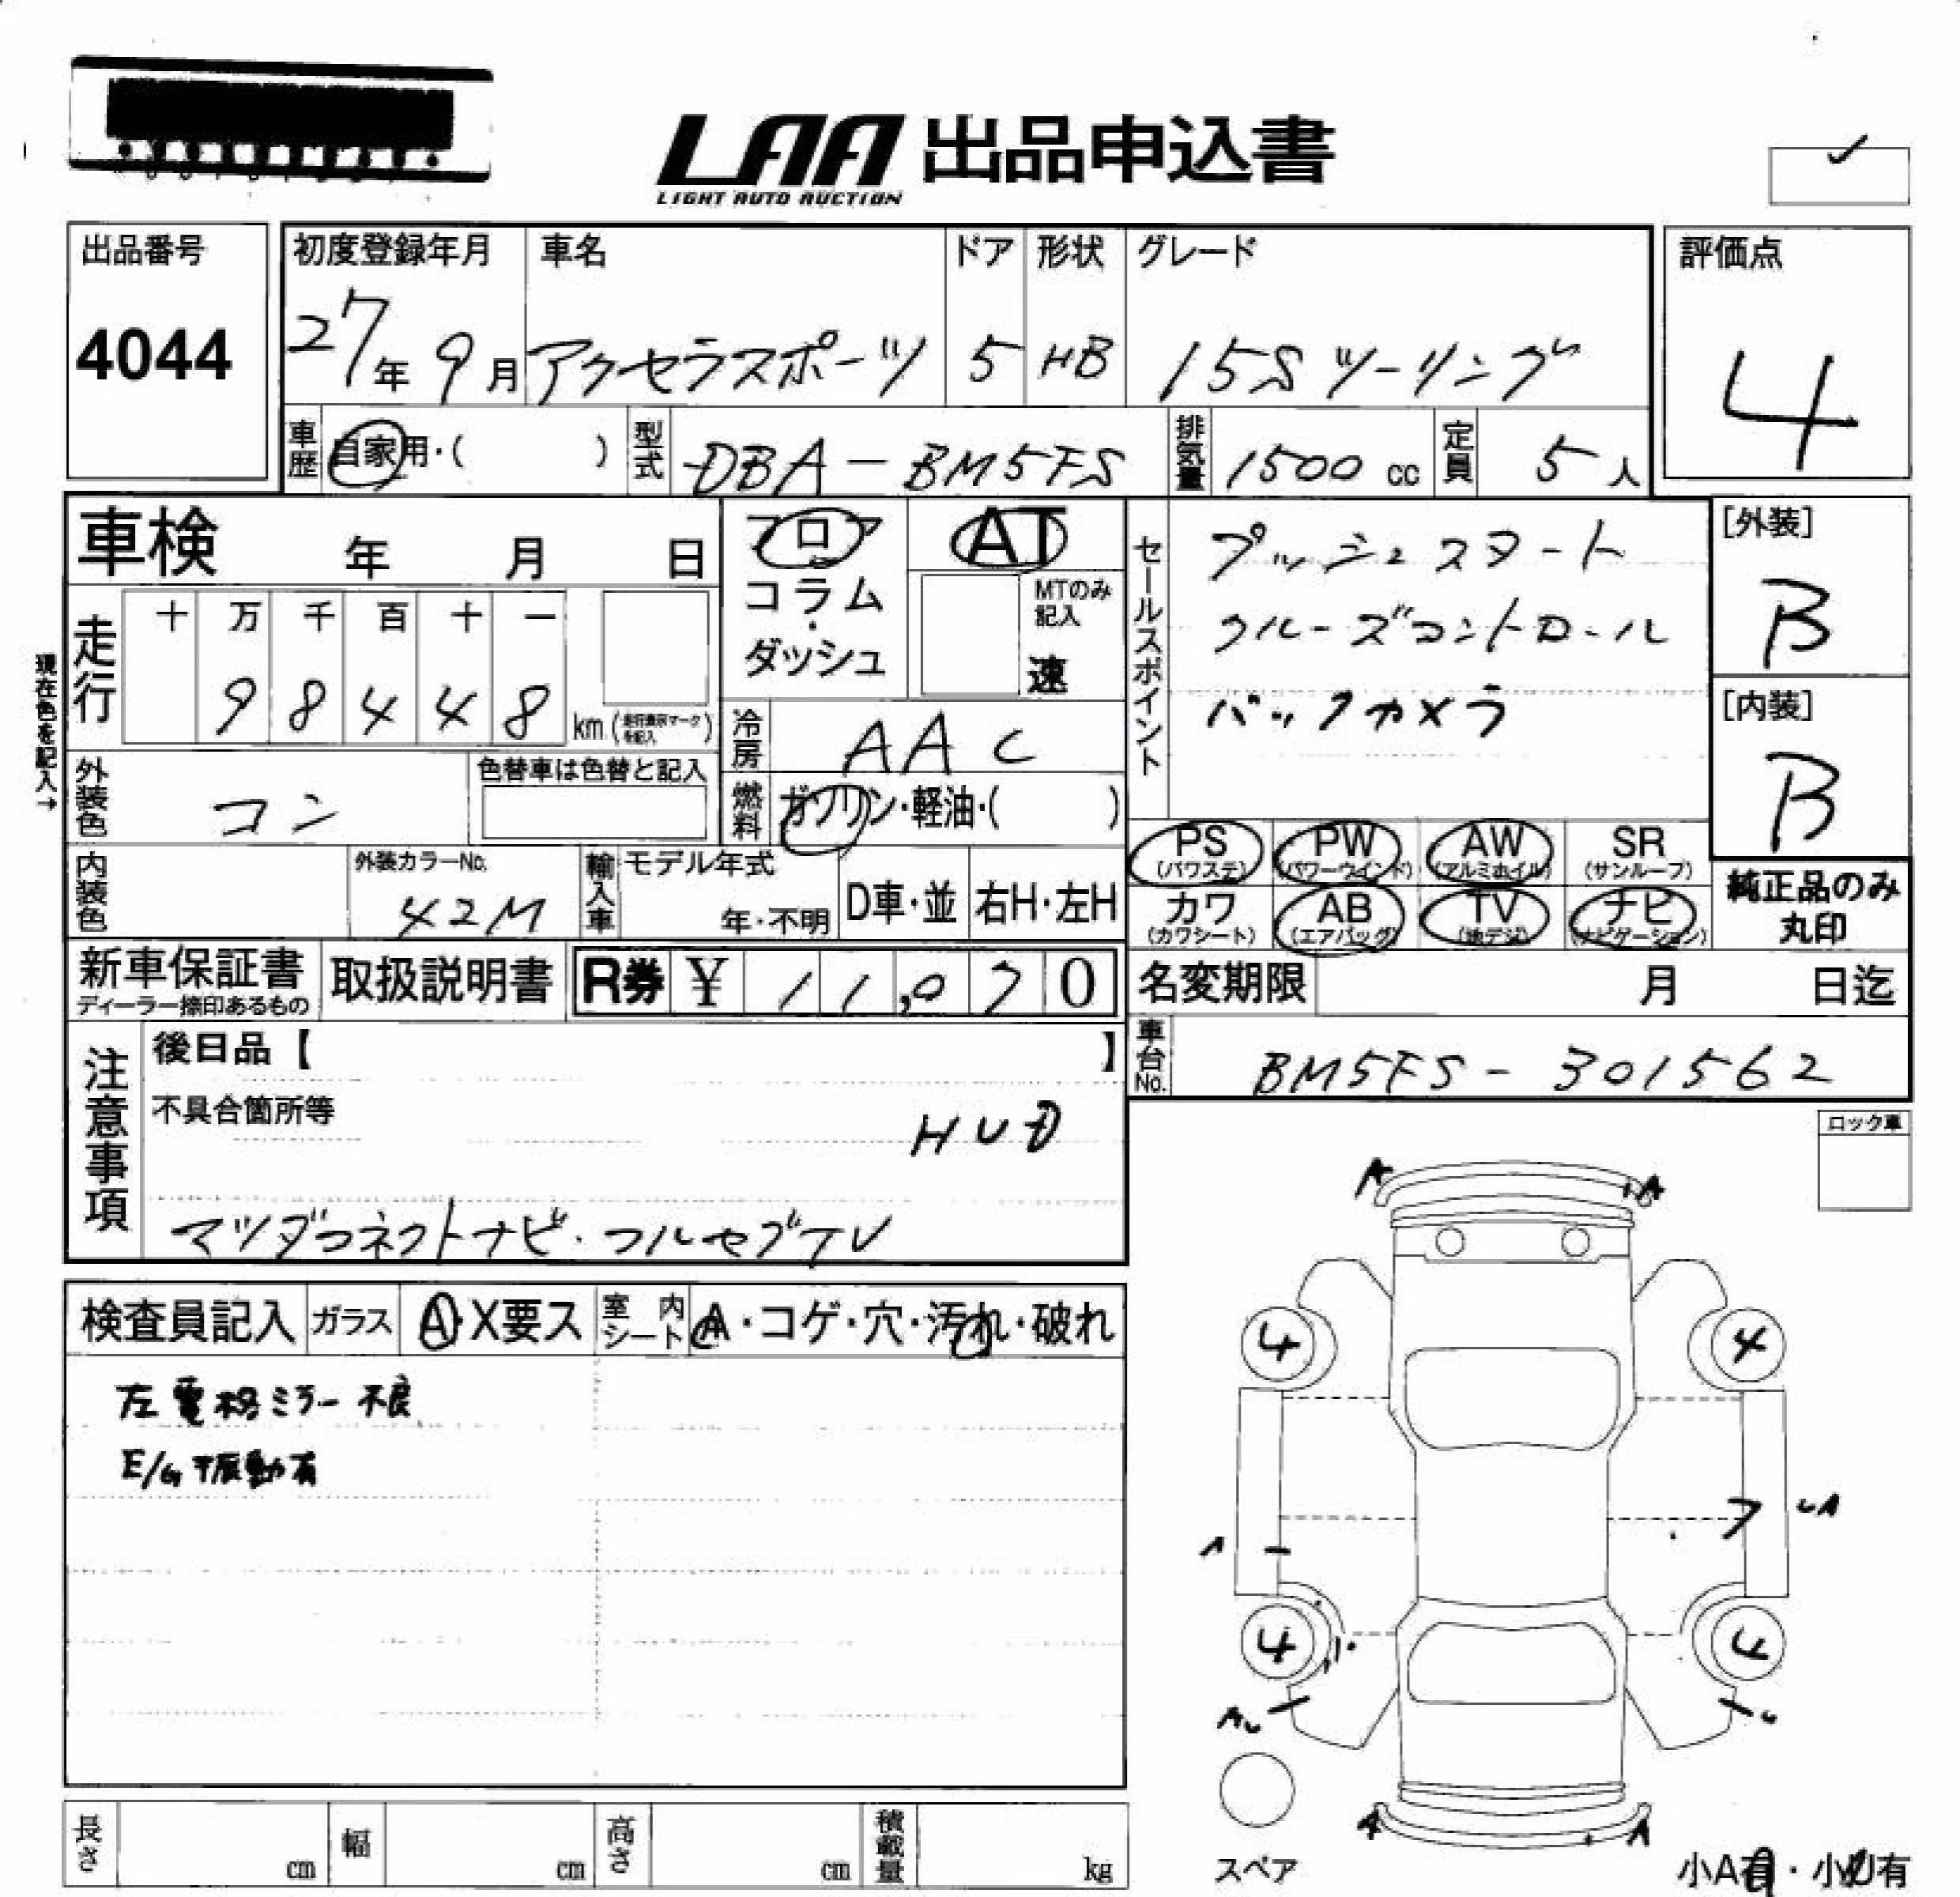 LAA 出品申込書
LIGHT AUTO AUCTION
出品番号
4044
初度登録年月
27年 9月
車名
アクセラスポーツ
ドア
5
形状
HB
グレード
15Sツーリング
評価点
4
車歴
自家用・( )
型式
DBA-BM5FS
排気量
1500 cc
定員
5人
車検 年 月 日
フロア
コラム
・
ダッシュ
AT
MTのみ
記入
速
セールスポイント
プッシュスタート
クルーズコントロール
バックカメラ
[外装]
B
[内装]
B
現在色を記入→
走行
十 万 千 百 十 一
9 8 4 4 8
km (走行表示マークを記入)
冷房
AAC
外装色
コン
色替車は色替と記入
燃料
ガソリン・軽油・( )
内装色
外装カラーNo.
42M
輸入車
モデル年式
年・不明
D車・並
右H・左H
PS
(パワステ)
PW
(パワーウインド)
AW
(アルミホイル)
SR
(サンルーフ)
カワ
(カワシート)
AB
(エアバッグ)
TV
(地デジ)
ナビ
(ナビゲーション)
純正品のみ
丸印
新車保証書
ディーラー捺印あるもの
取扱説明書
R券 ¥ 11,070
名変期限 月 日迄
車台No.
BM5FS-301562
注意事項
後日品【 】
不具合箇所等
HUD
マツダコネクトナビ・フルセグTV
ロック車
検査員記入
ガラス
A・X要ス
室内
シート
A・コゲ・穴・汚れ・破れ
左電格ミラー不良
E/G振動有
A
A
4
4
UA
A
4
4
AU
U
A
A
スペア
小A有・小U有
長さ cm
幅 cm
高さ cm
積載量 kg